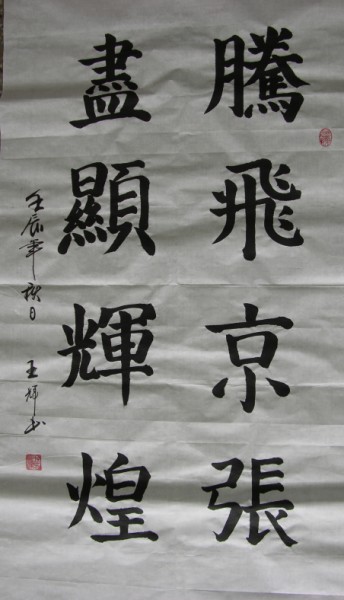 騰飛京張
盡顯輝煌
壬辰年秋日
王輝书